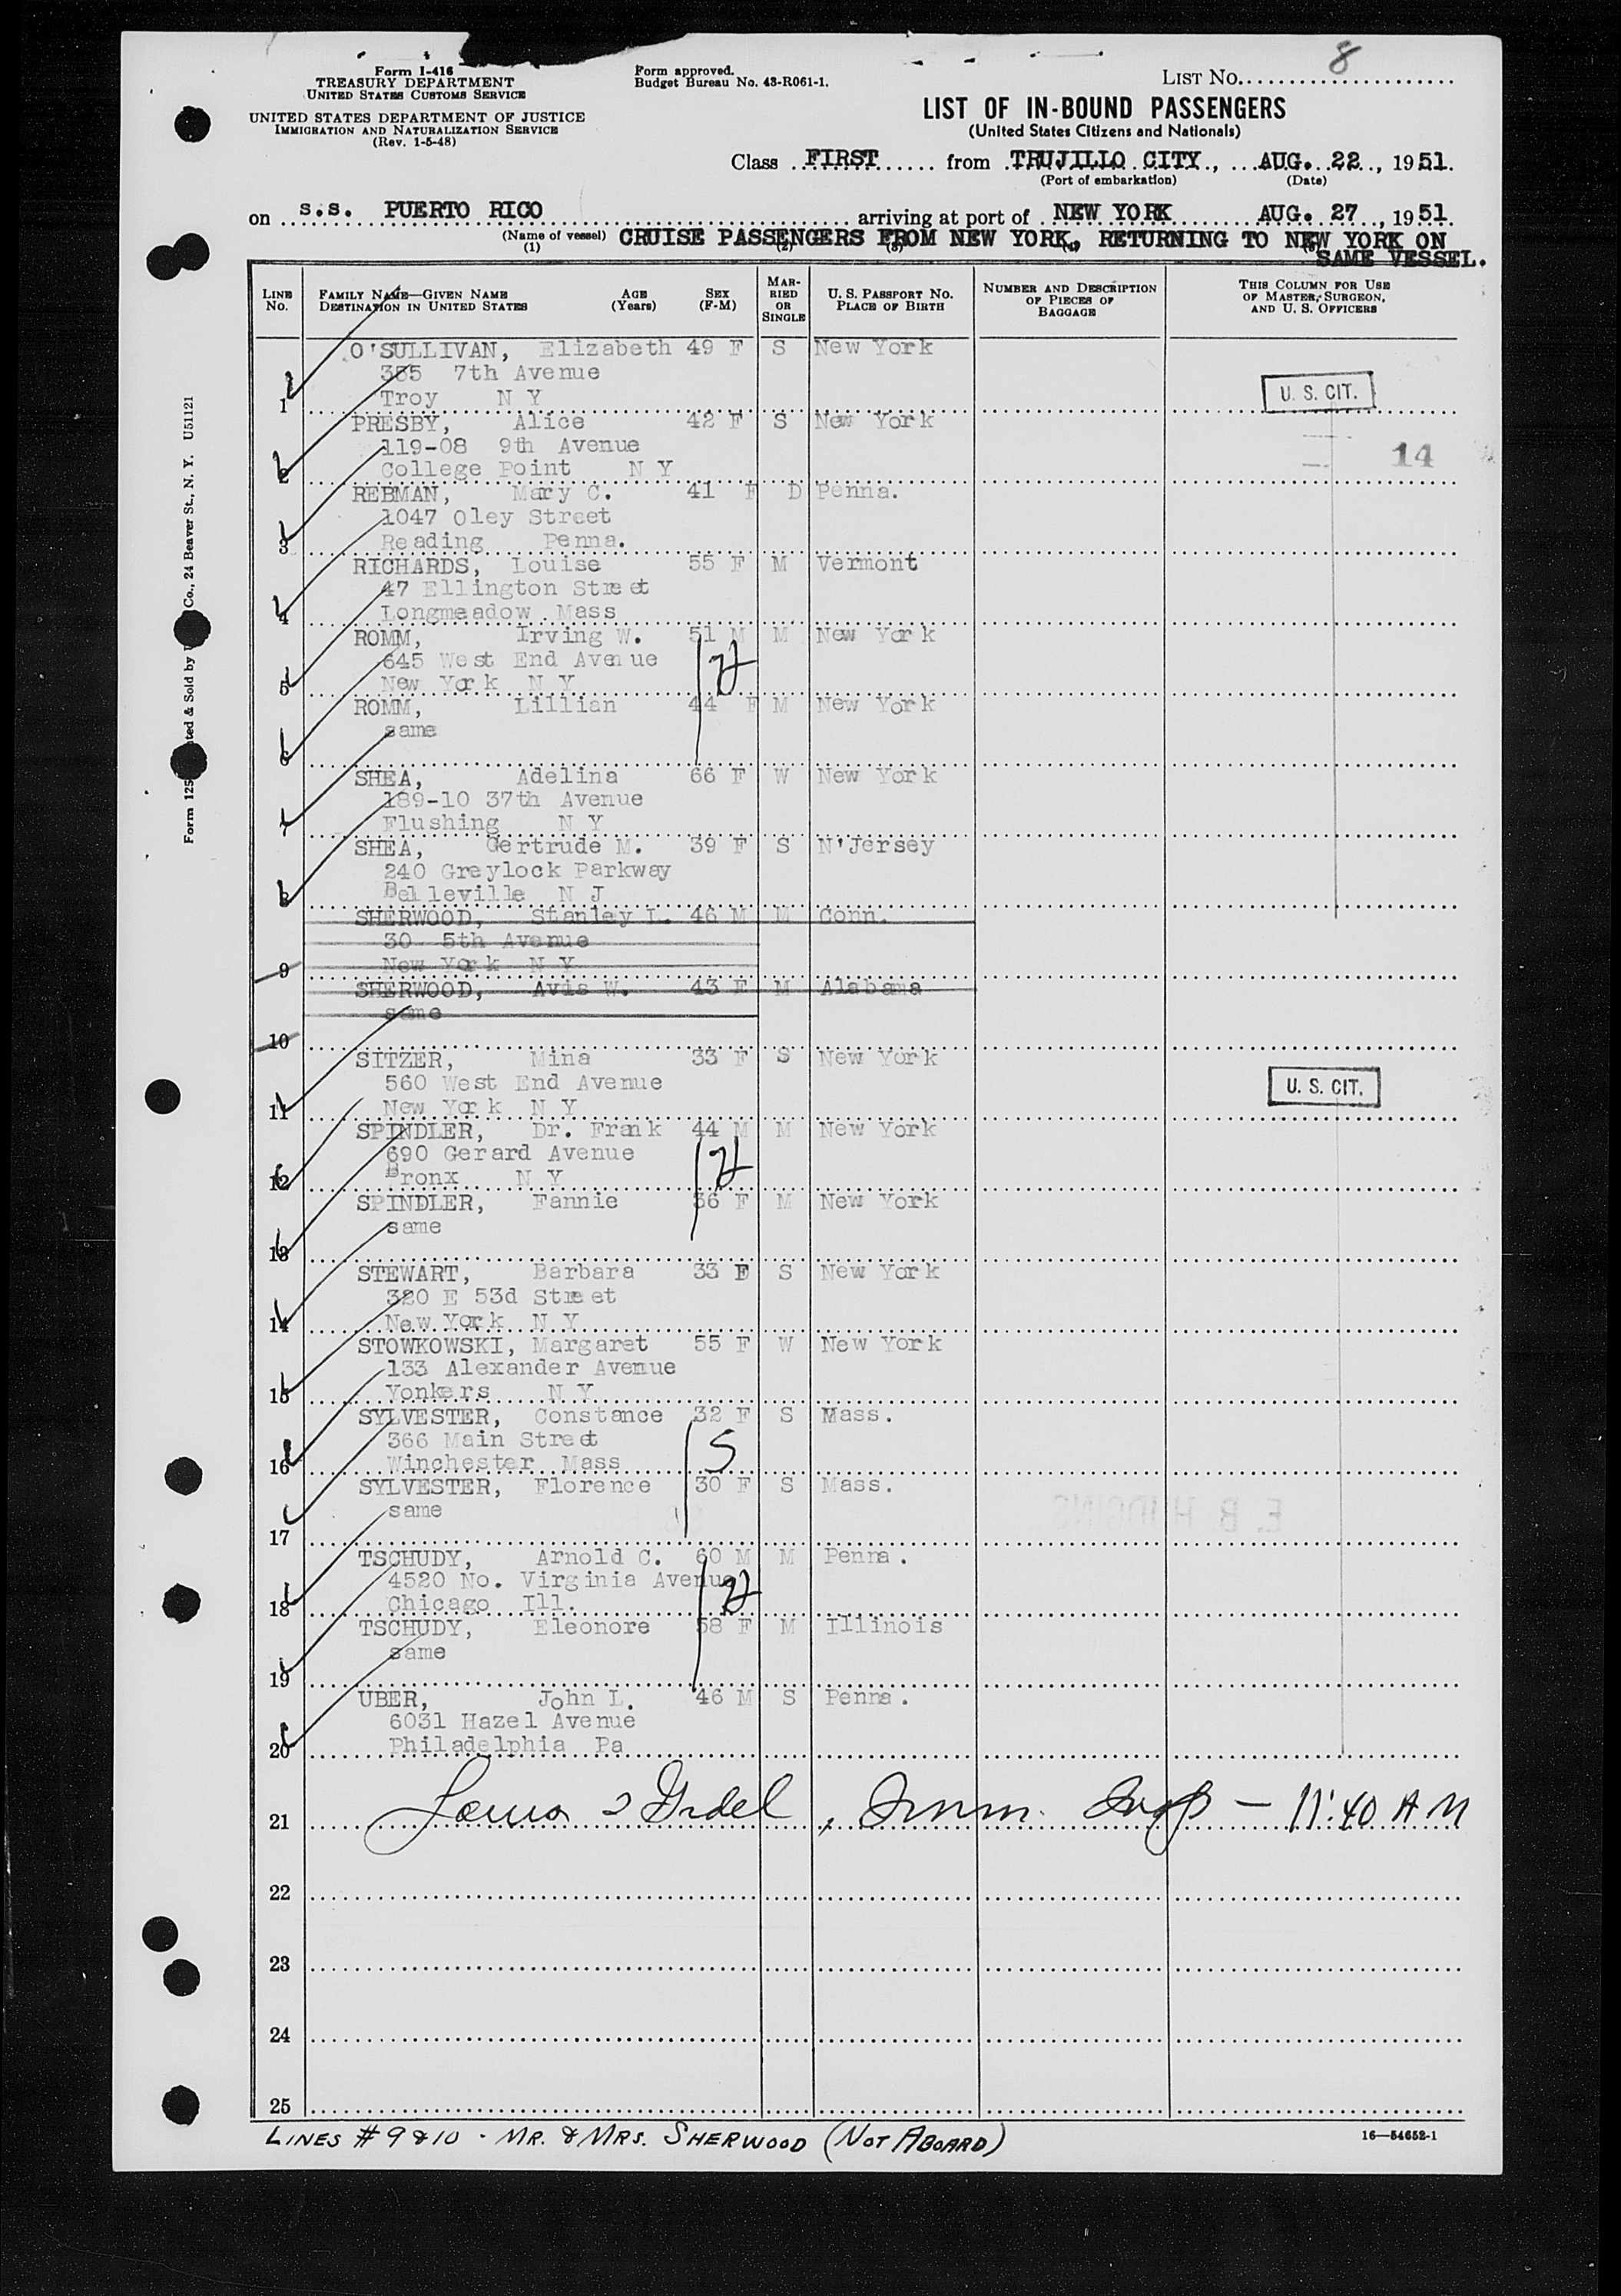 8
Form I-416
TREASURY DEPARTMENT
UNITED STATES CUSTOMS SERVICE
UNITED STATES DEPARTMENT OF JUSTICE
IMMIGRATION AND NATURALIZATION SERVICE
(Rev. 1-5-48)
Form approved.
Budget Bureau No. 43-R061-1.
LIST NO.
LIST OF IN-BOUND PASSENGERS
(United States Citizens and Nationals)
Class FIRST from TRUJILLO CITY, AUG. 22, 1951.
(Port of embarkation) (Date)
on s.s. PUERTO RICO arriving at port of NEW YORK AUG. 27, 1951.
(Name of vessel) CRUISE PASSENGERS FROM NEW YORK, RETURNING TO NEW YORK ON
(1)
SAME VESSEL.
LINE NO. FAMILY NAME—GIVEN NAME DESTINATION IN UNITED STATES AGE (Years) SEX (F-M) MARRIED OR SINGLE U. S. PASSPORT NO. PLACE OF BIRTH NUMBER AND DESCRIPTION OF PIECES OF BAGGAGE THIS COLUMN FOR USE OF MASTER, SURGEON, AND U. S. OFFICERS
O'SULLIVAN, Elizabeth 49 F S New York
385 7th Avenue
1 Troy N Y U. S. CIT.
PRESBY, Alice 42 F S New York
119-08 9th Avenue 14
2 College Point N Y
REBMAN, Mary C. 41 F D Penna.
1047 Oley Street
3 Reading Penna.
RICHARDS, Louise 55 F M Vermont
47 Ellington Street
4 Longmeadow Mass
ROMM, Irving W. 51 M M New York
645 West End Avenue
5 New York N Y
ROMM, Lillian 44 F M New York
same
6
SHEA, Adelina 66 F W New York
189-10 37th Avenue
7 Flushing N Y
SHEA, Gertrude M. 39 F S N'Jersey
240 Greylock Parkway
8 Belleville N J
SHERWOOD, Stanley L. 46 M M Conn.
30 5th Avenue
9 New York N Y
SHERWOOD, Avis W. 43 F M Alabama
same
10
SITZER, Mina 33 F S New York
560 West End Avenue U. S. CIT.
11 New York N Y
SPINDLER, Dr. Frank 44 M M New York
690 Gerard Avenue
12 Bronx N Y
SPINDLER, Fannie 36 F M New York
same
13
STEWART, Barbara 33 F S New York
320 E 53d Street
14 New York N Y
STOWKOWSKI, Margaret 55 F W New York
133 Alexander Avenue
15 Yonkers N Y
SYLVESTER, Constance 32 F S Mass.
366 Main Street
16 Winchester Mass
SYLVESTER, Florence 30 F S Mass.
same
17
TSCHUDY, Arnold C. 60 M M Penna.
4520 No. Virginia Avenue
18 Chicago Ill.
TSCHUDY, Eleonore 58 F M Illinois
same
19
UBER, John L. 46 M S Penna.
6031 Hazel Avenue
20 Philadelphia Pa
21 Imm. Insp — 11:40 A M
22
23
24
25
LINES # 9 & 10 - MR. & MRS. SHERWOOD (NOT ABOARD)
16—54652-1
Co., 24 Beaver St., N. Y. U51121